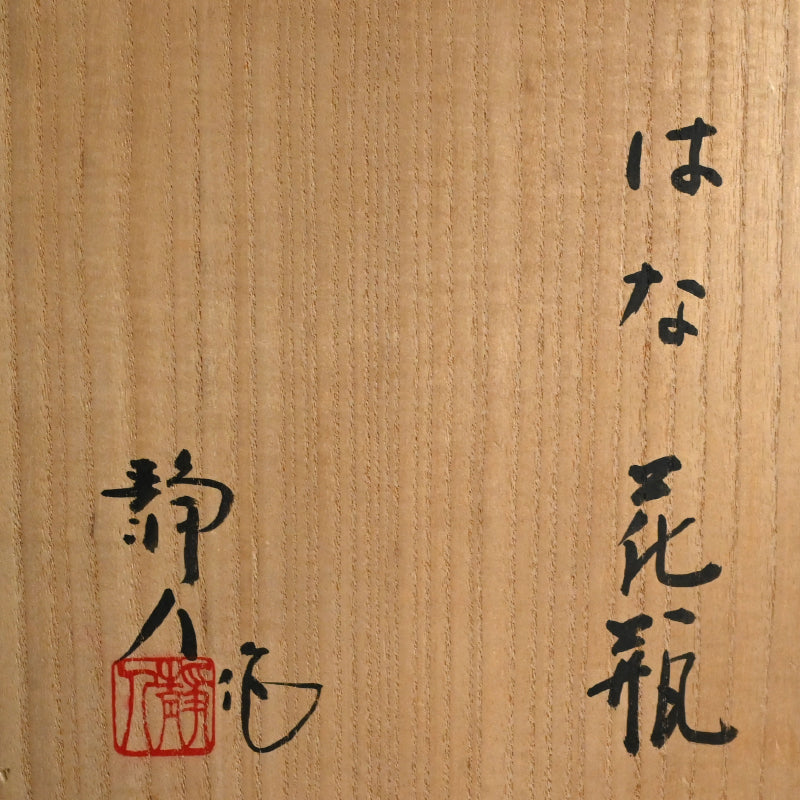 はな 花瓶
静人作
靜人